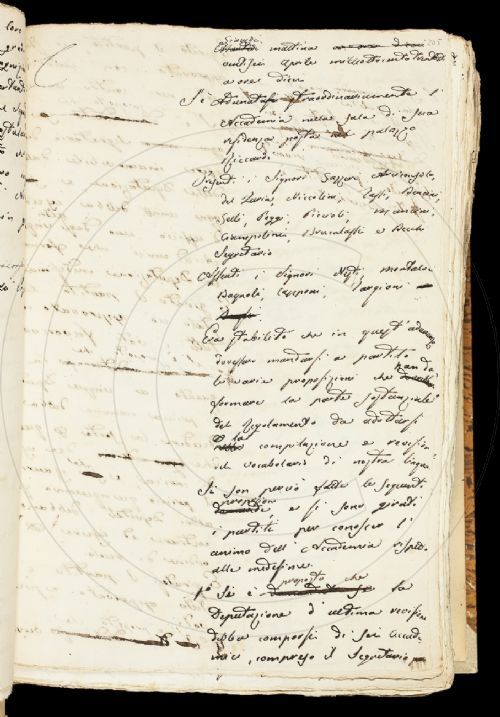 mattina
aprile milleottocento
a ore dieci
Si è adunata straordinariamente l'
Accademia nella sala di sua
residenza posta nel palazzo
Riccardi.
Presenti i Signori Gazzeri, Arcangeli,
Del Furia, Niccolini, Bencini,
Selli, Poggi, Piccioli, Mancini,
Ciampolini, Brucalassi e Becchi
Segretario
Assenti i Signori Nesti, Montalvi
Bagnoli, Capponi, Targioni
Era stabilito che in quest' adunanza
dovessero mandarsi a partito
le varie proposizioni che
formare la parte sostanziale
del Regolamento da adottarsi
la compilazione e revisione
del vocabolario di nostra lingua
Si son perciò fatte le seguenti
proposizioni e si sono girati
i partiti per conoscere l'
animo dell' Accademia rispetto
alle medesime.
1° Si è proposto che la
Deputazione d'ultima revisione
debba comporsi di sei Accade-
mici, compreso il Segretario